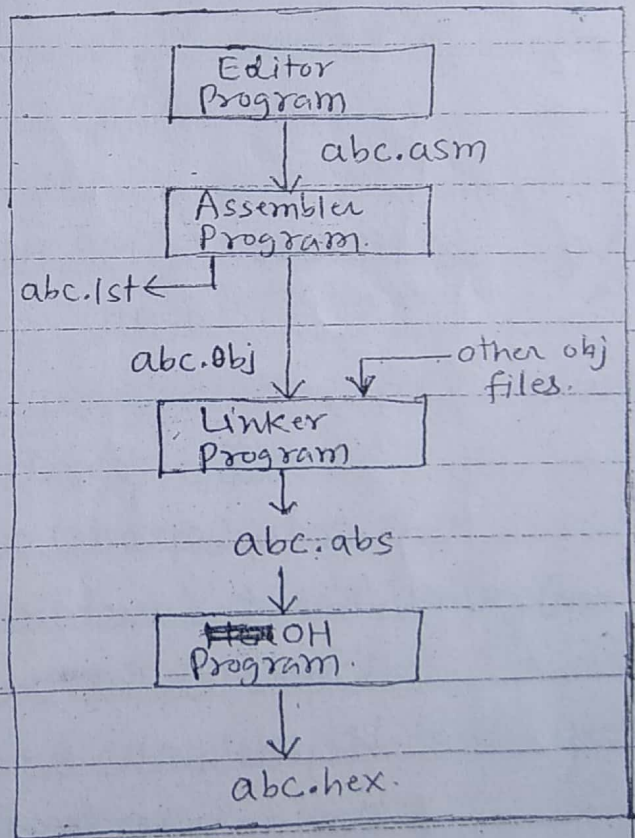 Editor
Program
abc.asm
Assembler
Program.
abc.lst
abc.obj
other obj
files.
Linker
Program
abc.abs
OH
Program.
abc.hex.